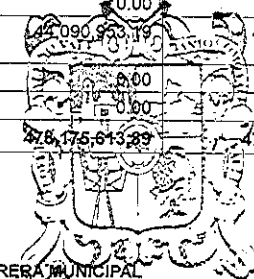 0.00
44,090,953.19
0.00
0.00
478,175,613.89
RERA MUNICIPAL